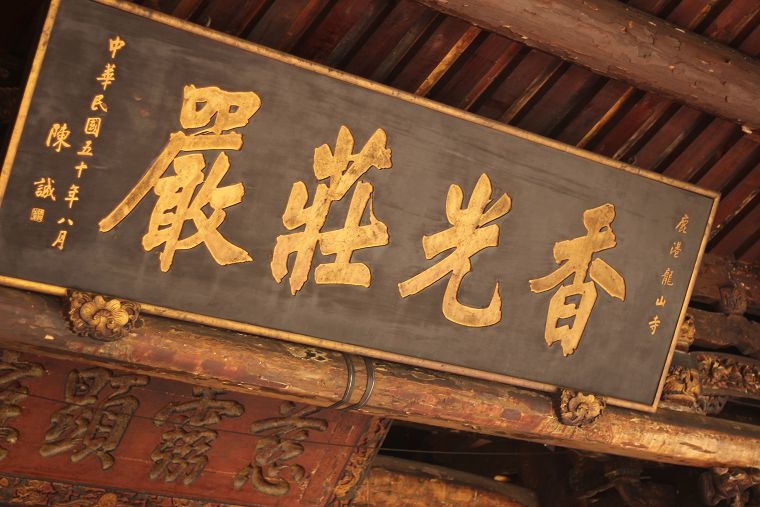 鹿港龍山寺
香光莊嚴
中華民國五十年八月
陳誠
慈